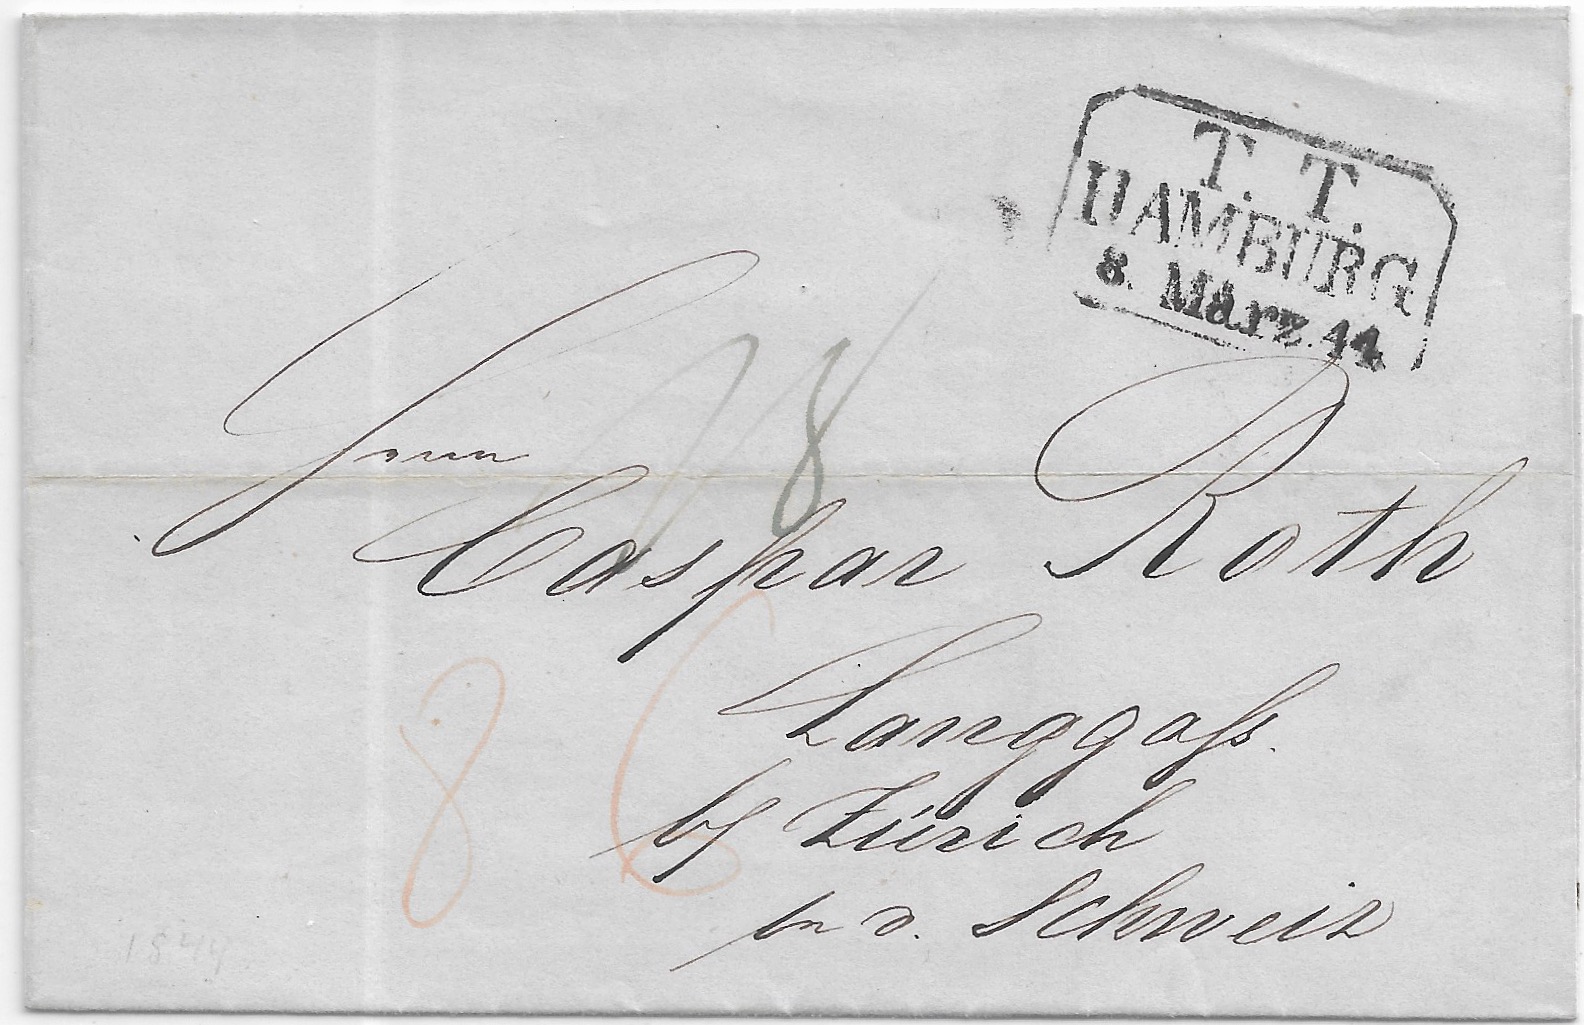 T. T.
HAMBURG
8. März 44
Herrn
28
Caspar Roth
8 6
Langgass.
b/ Zürich
in d. Schweiz
1844